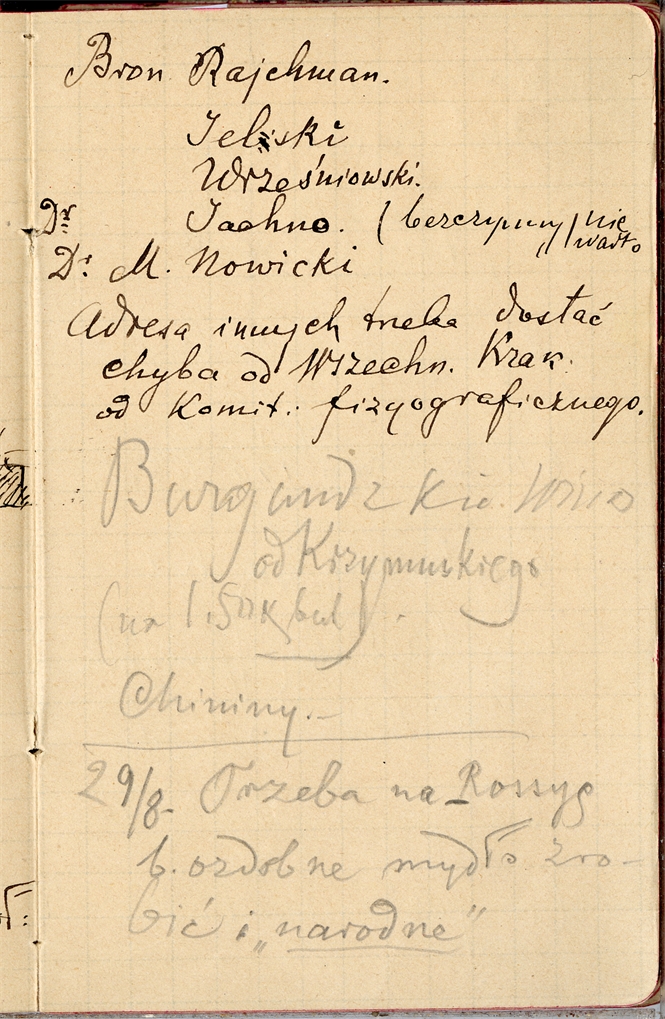 Bron Rajchman.
Jelski
Wrześniowski.
Dr Jachno. (bezczynny) nie
warto
Dr M. Nowicki
Adresa innych trzeba dostać
chyba od Wszechn. Krak.
od Komit. fizyograficznego.
Burgundzkie Wino
od Krzymuskiego
(na 1.50 K but)
Chininy.–
29/8. Trzeba na Rossyę
b. ozdobne mydło zro-
bić i „narodne”